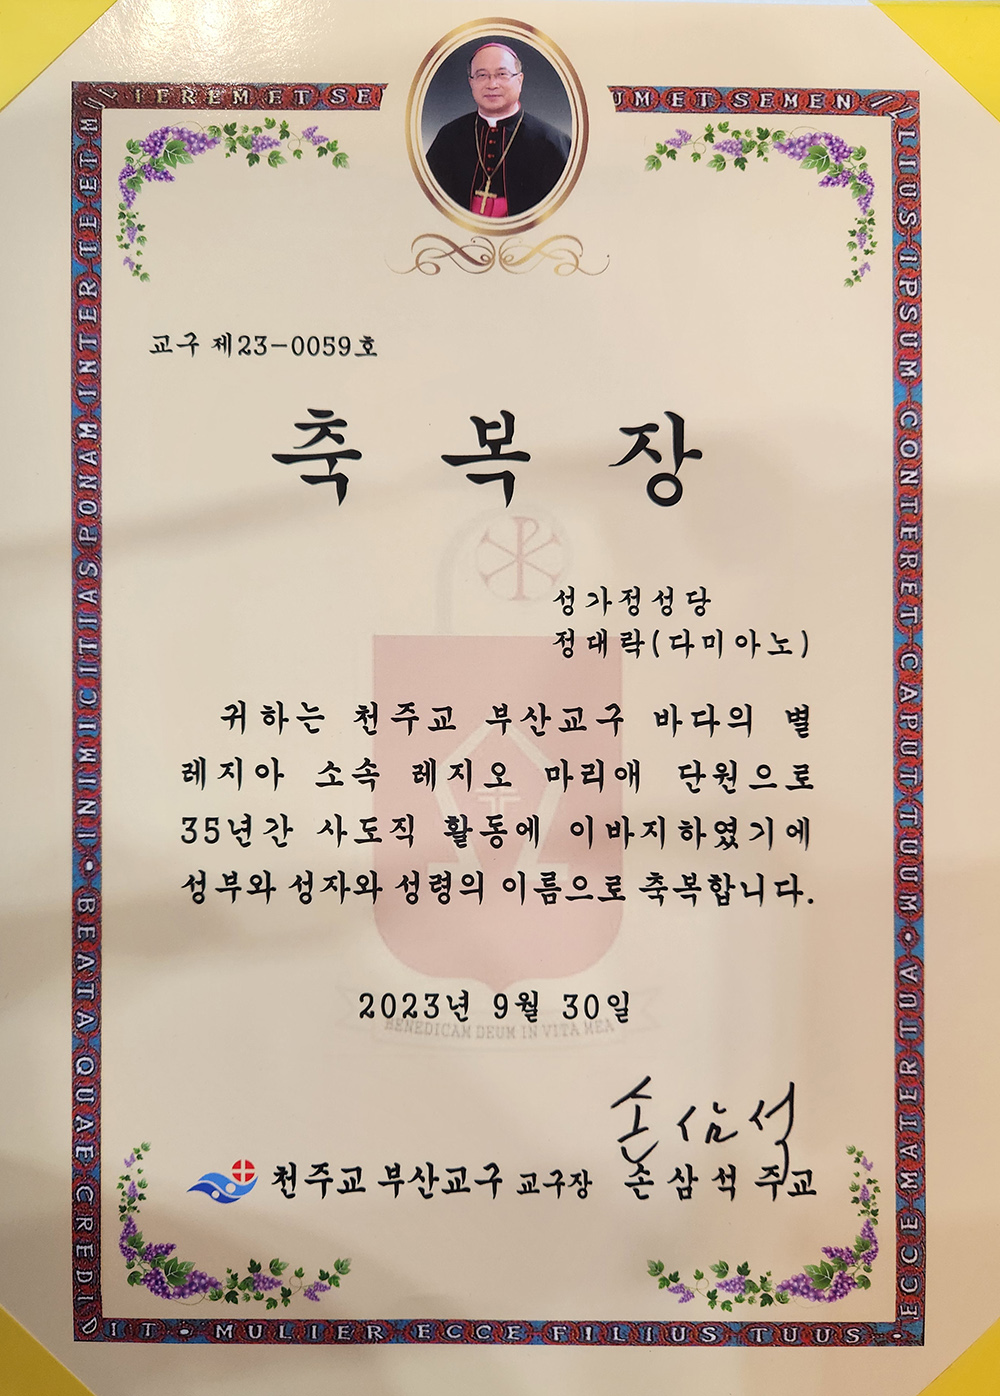 INIMICITIAS PONAM INTER TE ET
IEREM ET SE
UM ET SEMEN
ILLIUS IPSUM CONTERET CAPUT TUUM • 
교구 제23-0059호
축 복 장
성가정성당
정대락(다미아노)
귀하는 천주교 부산교구 바다의 별
레지아 소속 레지오 마리애 단원으로
35년간 사도직 활동에 이바지하였기에
성부와 성자와 성령의 이름으로 축복합니다.
2023년 9월 30일
BENEDICAM DEUM IN VITA MEA
손삼석
천주교 부산교구 교구장 손삼석 주교
BEATA QUAE CREDIDIT •
MULIER ECCE FILIUS TUUS •
ECCE MATER TUA •